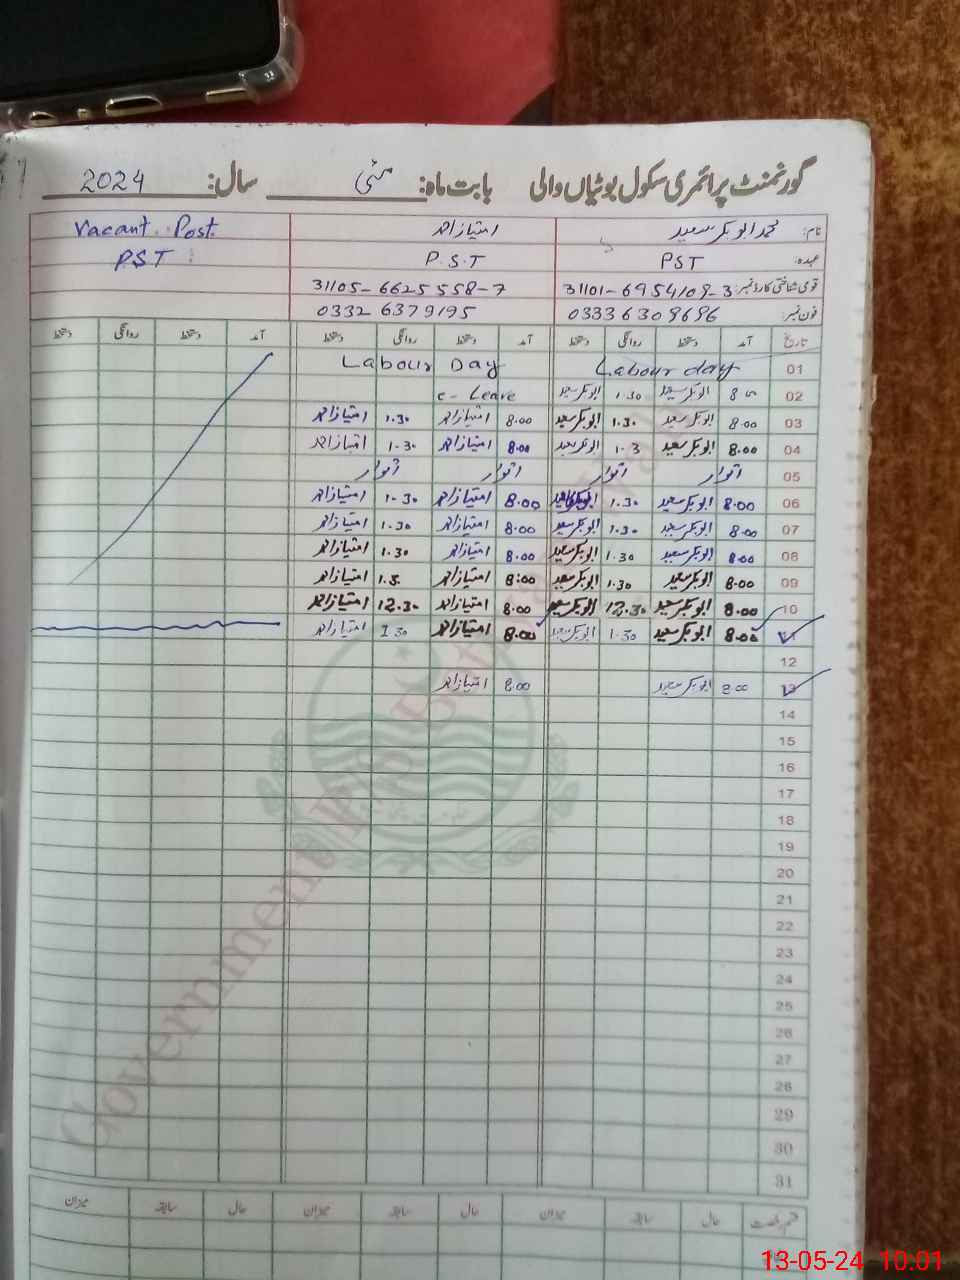 گورنمنٹ پرائمری سکول بوٹیاں والی بابت ماہ: مئی سال: 2024
نام: محمد ابوبکر سعید امتیاز احمد Vacant Post
عہدہ: PST P.S.T PST
قومی شناختی کارڈ نمبر: 31101-6954108-3 31105-6625558-7
فون نمبر: 0333 6308686 0332 6379195
تاریخ آمد دستخط روانگی دستخط آمد دستخط روانگی دستخط آمد دستخط روانگی دستخط
01 Labour day Labour Day
02 8 00 ابوبکر سعید 1.30 ابوبکر سعید c- Leave
03 8.00 ابوبکر سعید 1.30 ابوبکر سعید 8.00 امتیاز احمد 1.30 امتیاز احمد
04 8.00 ابوبکر سعید 1.3 ابوبکر سعید 8.00 امتیاز احمد 1.30 امتیاز احمد
05 اتوار اتوار اتوار اتوار
06 8.00 ابوبکر سعید 1.30 8.00 امتیاز احمد 1.30 امتیاز احمد
07 8.00 ابوبکر سعید 1.30 ابوبکر سعید 8.00 امتیاز احمد 1.30 امتیاز احمد
08 8.00 ابوبکر سعید 1.30 ابوبکر سعید 8.00 امتیاز احمد 1.30 امتیاز احمد
09 8.00 ابوبکر سعید 1.30 ابوبکر سعید 8:00 امتیاز احمد 1.3 امتیاز احمد
10 8.00 ابوبکر سعید 12.30 ابوبکر سعید 8.00 امتیاز احمد 12.30 امتیاز احمد
11 8.00 ابوبکر سعید 1.30 ابوبکر سعید 8.00 امتیاز احمد 1 30 امتیاز احمد
12
13 8.00 ابوبکر سعید 8.00 امتیاز احمد
14
15
16
17
18
19
20
21
22
23
24
25
26
27
28
29
30
31
قسم رخصت حال سابقہ میزان حال سابقہ میزان حال سابقہ میزان
Government
13-05-24 10:01